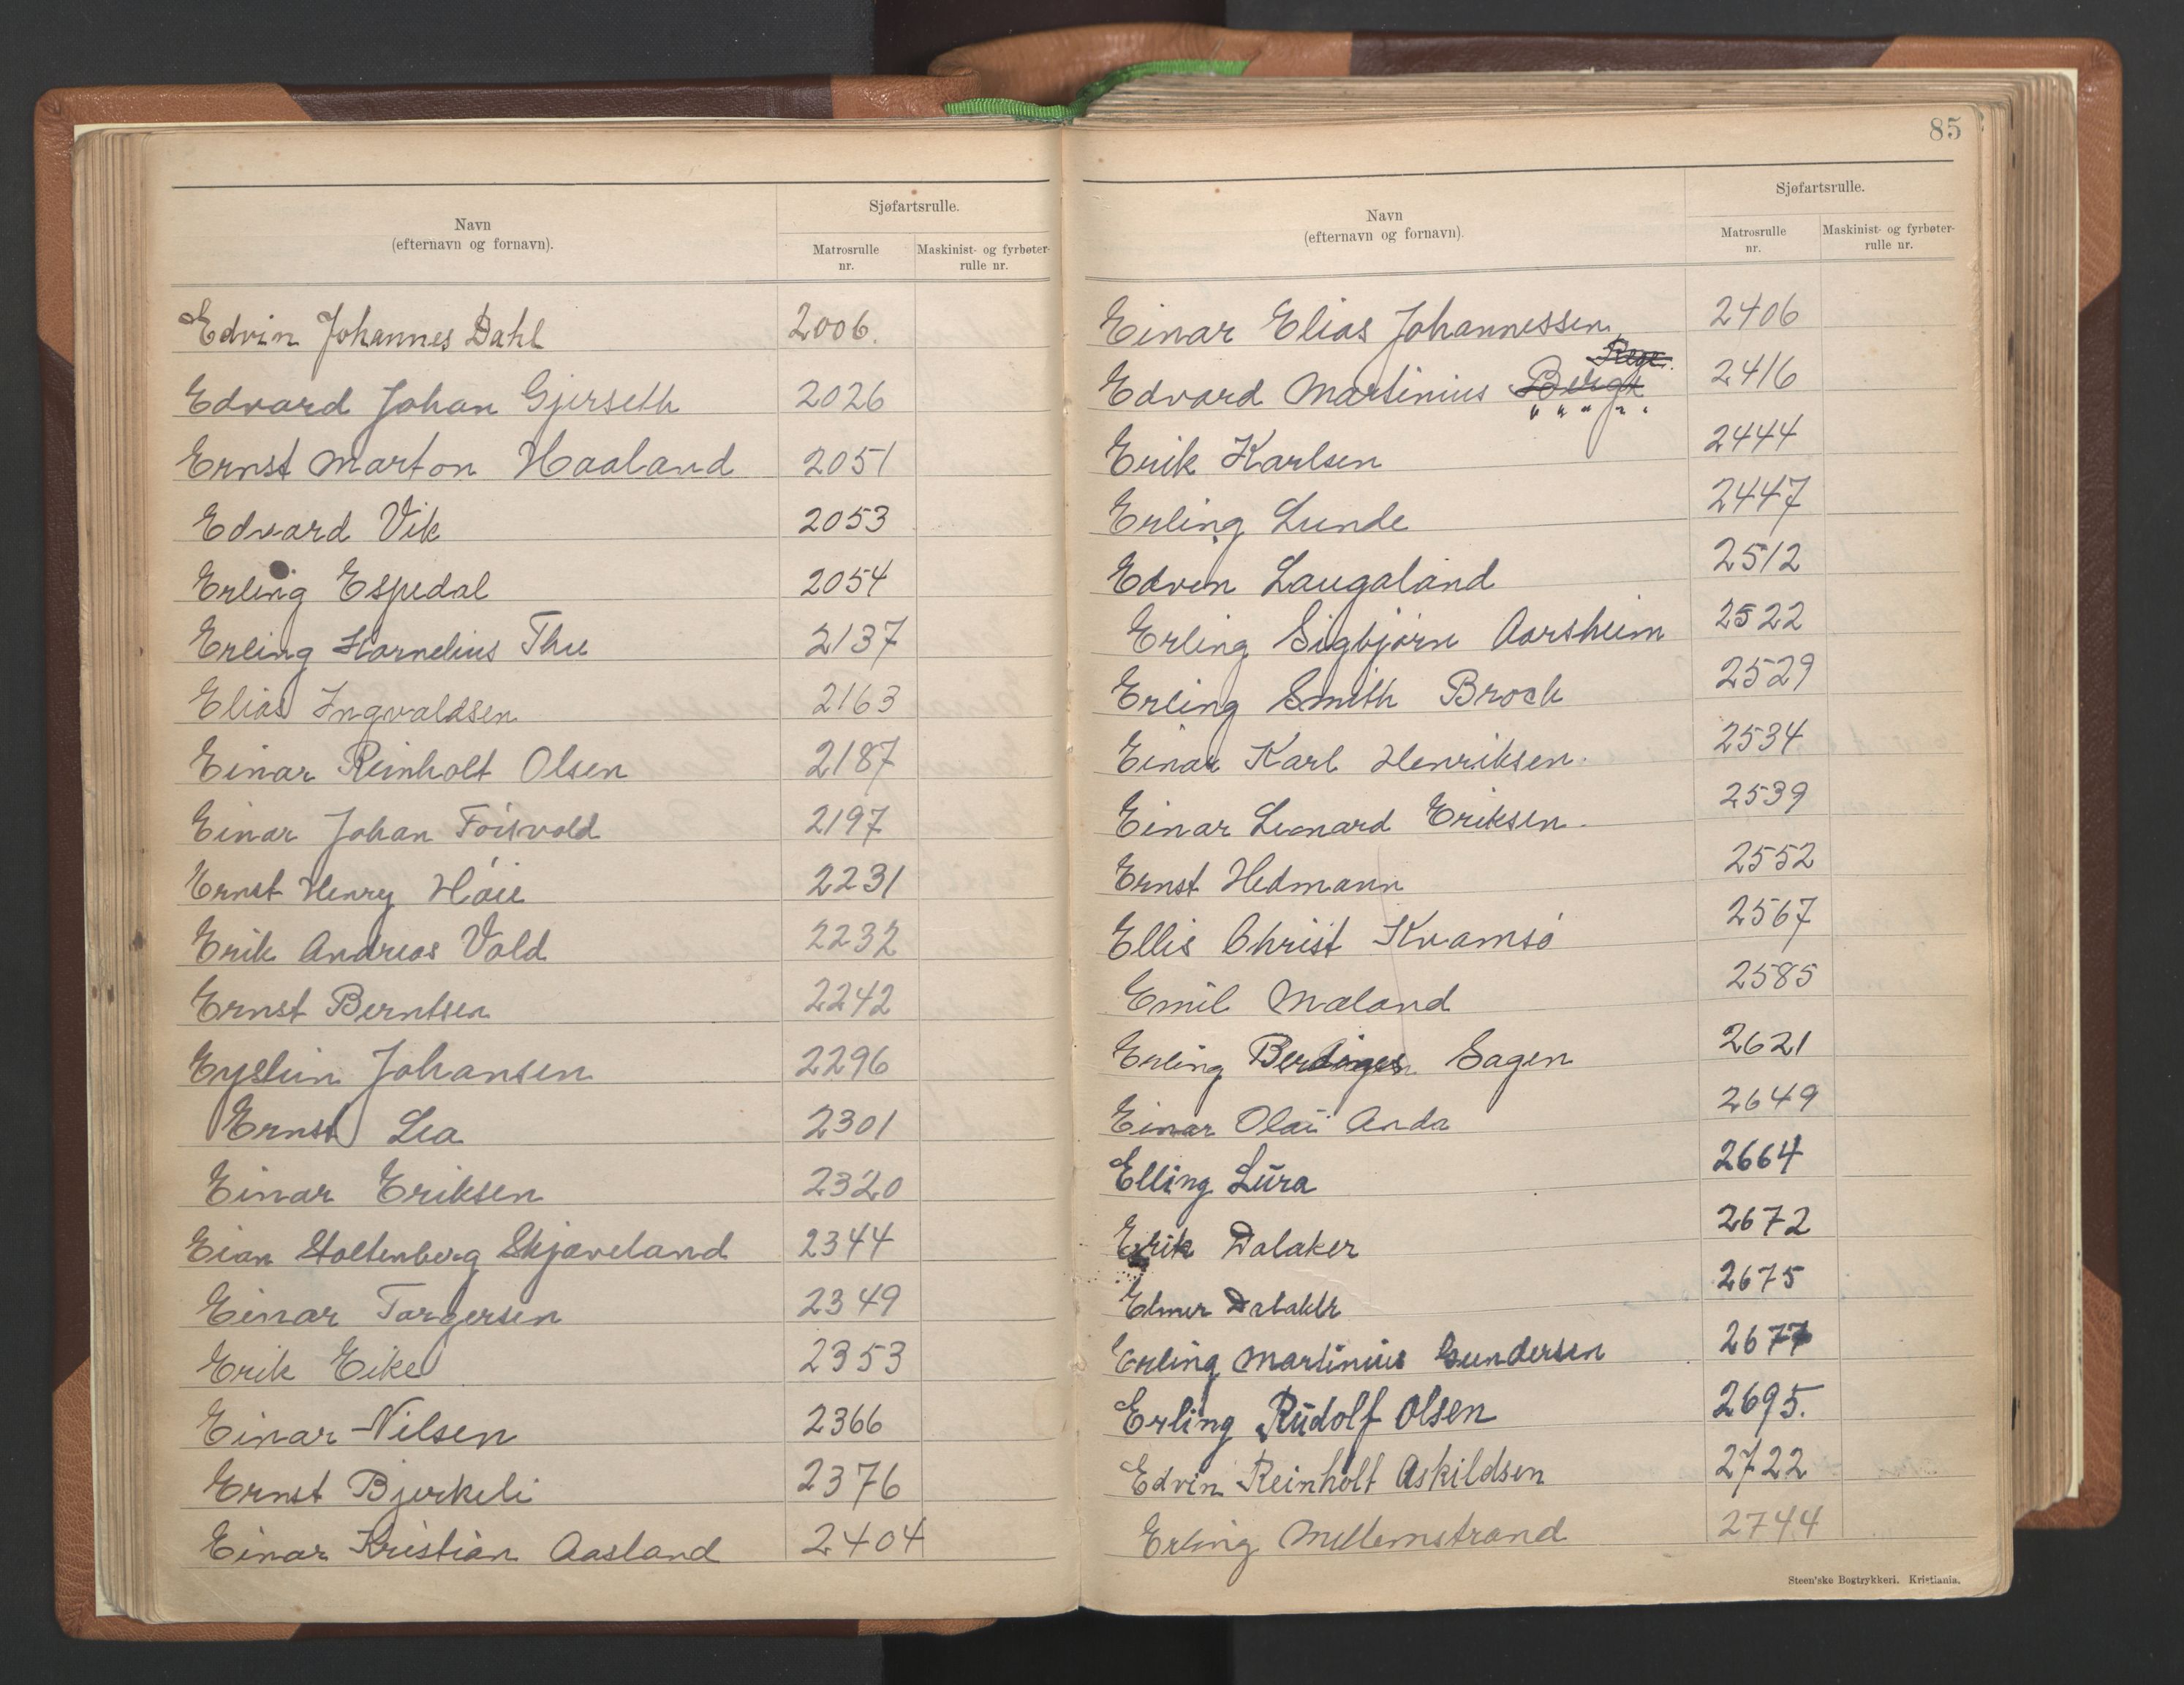 Navn
(efternavn og fornavn).
Sjøfartsrulle.
Matrosrulle
nr.
Maskinist- og fyrbøter-
rulle nr.
Edvin Johannes Dahl 2006.
Edvard Johan Gjerseth 2026
Ernst Marton Haaland 2051
Edvard Vik 2053
Erling Espedal 2054
Erling Kornelius Thu 2137
Elias Ingvaldsen 2163
Einar Reinholt Olsen 2187
Einar Johan 2197
Ernst Henry Hóie 2231
Erik Andreas Vold 2232
Ernst Berntsen 2242
Eystein Johansen 2296
Ernst Lea 2301
Einar Eriksen 2320
Eian Stoltenberg Skjæveland 2344
Einar Torgersen 2349
Erik Eike 2353
Einar Nilsen 2366
Ernst Bjerkeli 2376
Einar Kristian Aasland 2404
85
Navn
(efternavn og fornavn).
Sjøfartsrulle.
Matrosrulle
nr.
Maskinist- og fyrbøter-
rulle nr.
Einar Elias Johannessen 2406
Edvard Martinius 2416
Erik Karlsen 2444
Erling Lunde 2447
Edvin Laugaland 2512
Erling Sigbjörn Aarsheim 2522
Erling Smith Brock 2529
Einar Karl Henriksen. 2534
Einar Leonard Eriksen. 2539
Ernst Hedmann 2552
Ellis Christ Kvamsó 2567
Emil Maland 2585
Erling Sagen 2621
Einar Olai Anda 2649
Elling Lura 2664
Erik Dalaker 2672
Elmer Dalaker 2675
Erling Martinius Gundersen 2677
Erling Rudolf Olsen 2695.
Edvin Reinholt Askildsen 2722
Erling Mellemstrand 2744
Steen'ske Bogtrykkeri. Kristiania.